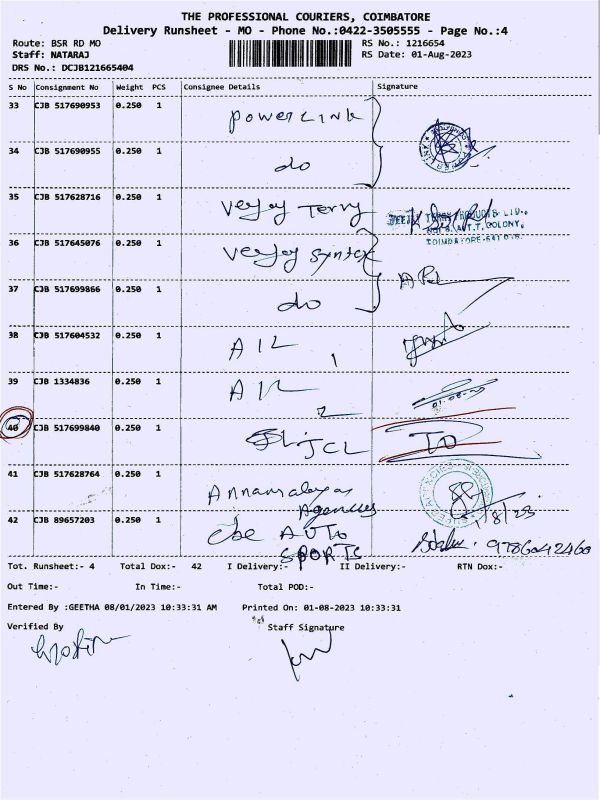 THE PROFESSIONAL COURIERS, COIMBATORE
Delivery Runsheet - MO - Phone No.:0422-3505555 - Page No.:4
Route: BSR RD MO RS No.: 1216654
Staff: NATARAJ RS Date: 01-Aug-2023
DRS No.: DCJB121665404
S No Consignment No Weight PCS Consignee Details Signature
33 CJB 517690953 0.250 1 Power Link
34 CJB 517690955 1 0.250 do
35 CJB 517628716 0.250 1 Terry
TERRY PRODUCTS LTD.,
COLONY,
COIMBATORE-641
36 CJB 517645076 0.250 1
37 CJB 517699866 0.250 1 do
38 CJB 517604532 0.250 1 1
39 CJB 1334836 0.250 1 2 01-08-23
40 CJB 517699840 0.250 1 JCL TO
41 CJB 517628764 0.250 1 Agencies 1/8/23
42 CJB 89657203 0.250 1 cbe AUTO
SPORTS 9786042460
Tot. Runsheet:- 4 Total Dox:- 42 I Delivery:- II Delivery:- RTN Dox:-
Out Time:- In Time:- Total POD:-
Entered By :GEETHA 08/01/2023 10:33:31 AM Printed On: 01-08-2023 10:33:31
Verified By Staff Signature